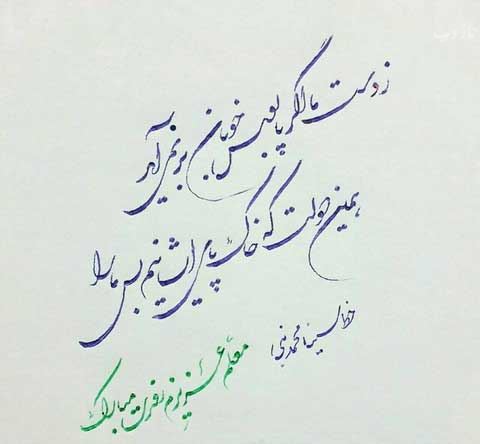 ز دست ما اگر پابوس خوبان بر نمی آید
همین دولت که خاک پای ایشانیم بس ما را
خط سینا محمد
معلم عزیزم روزت مبارک